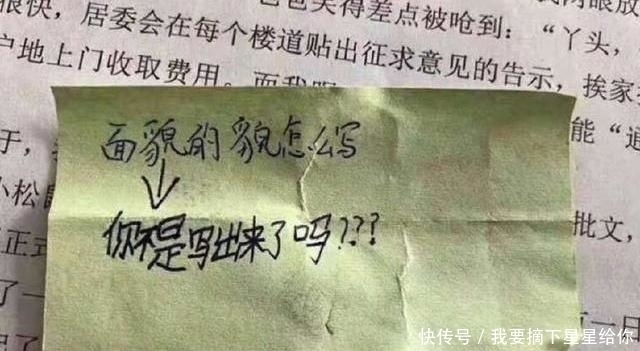 很快，
也笑得差点被呛到：“丫头，
居委会在每个楼道贴出征求意见的告示，挨家
户地上门收取费用。
面貌的貌怎么写
你不是写出来了吗???
能“道
于，
小松鼠
批文，
正式
了一
有一日
快传号／我要摘下星星给你